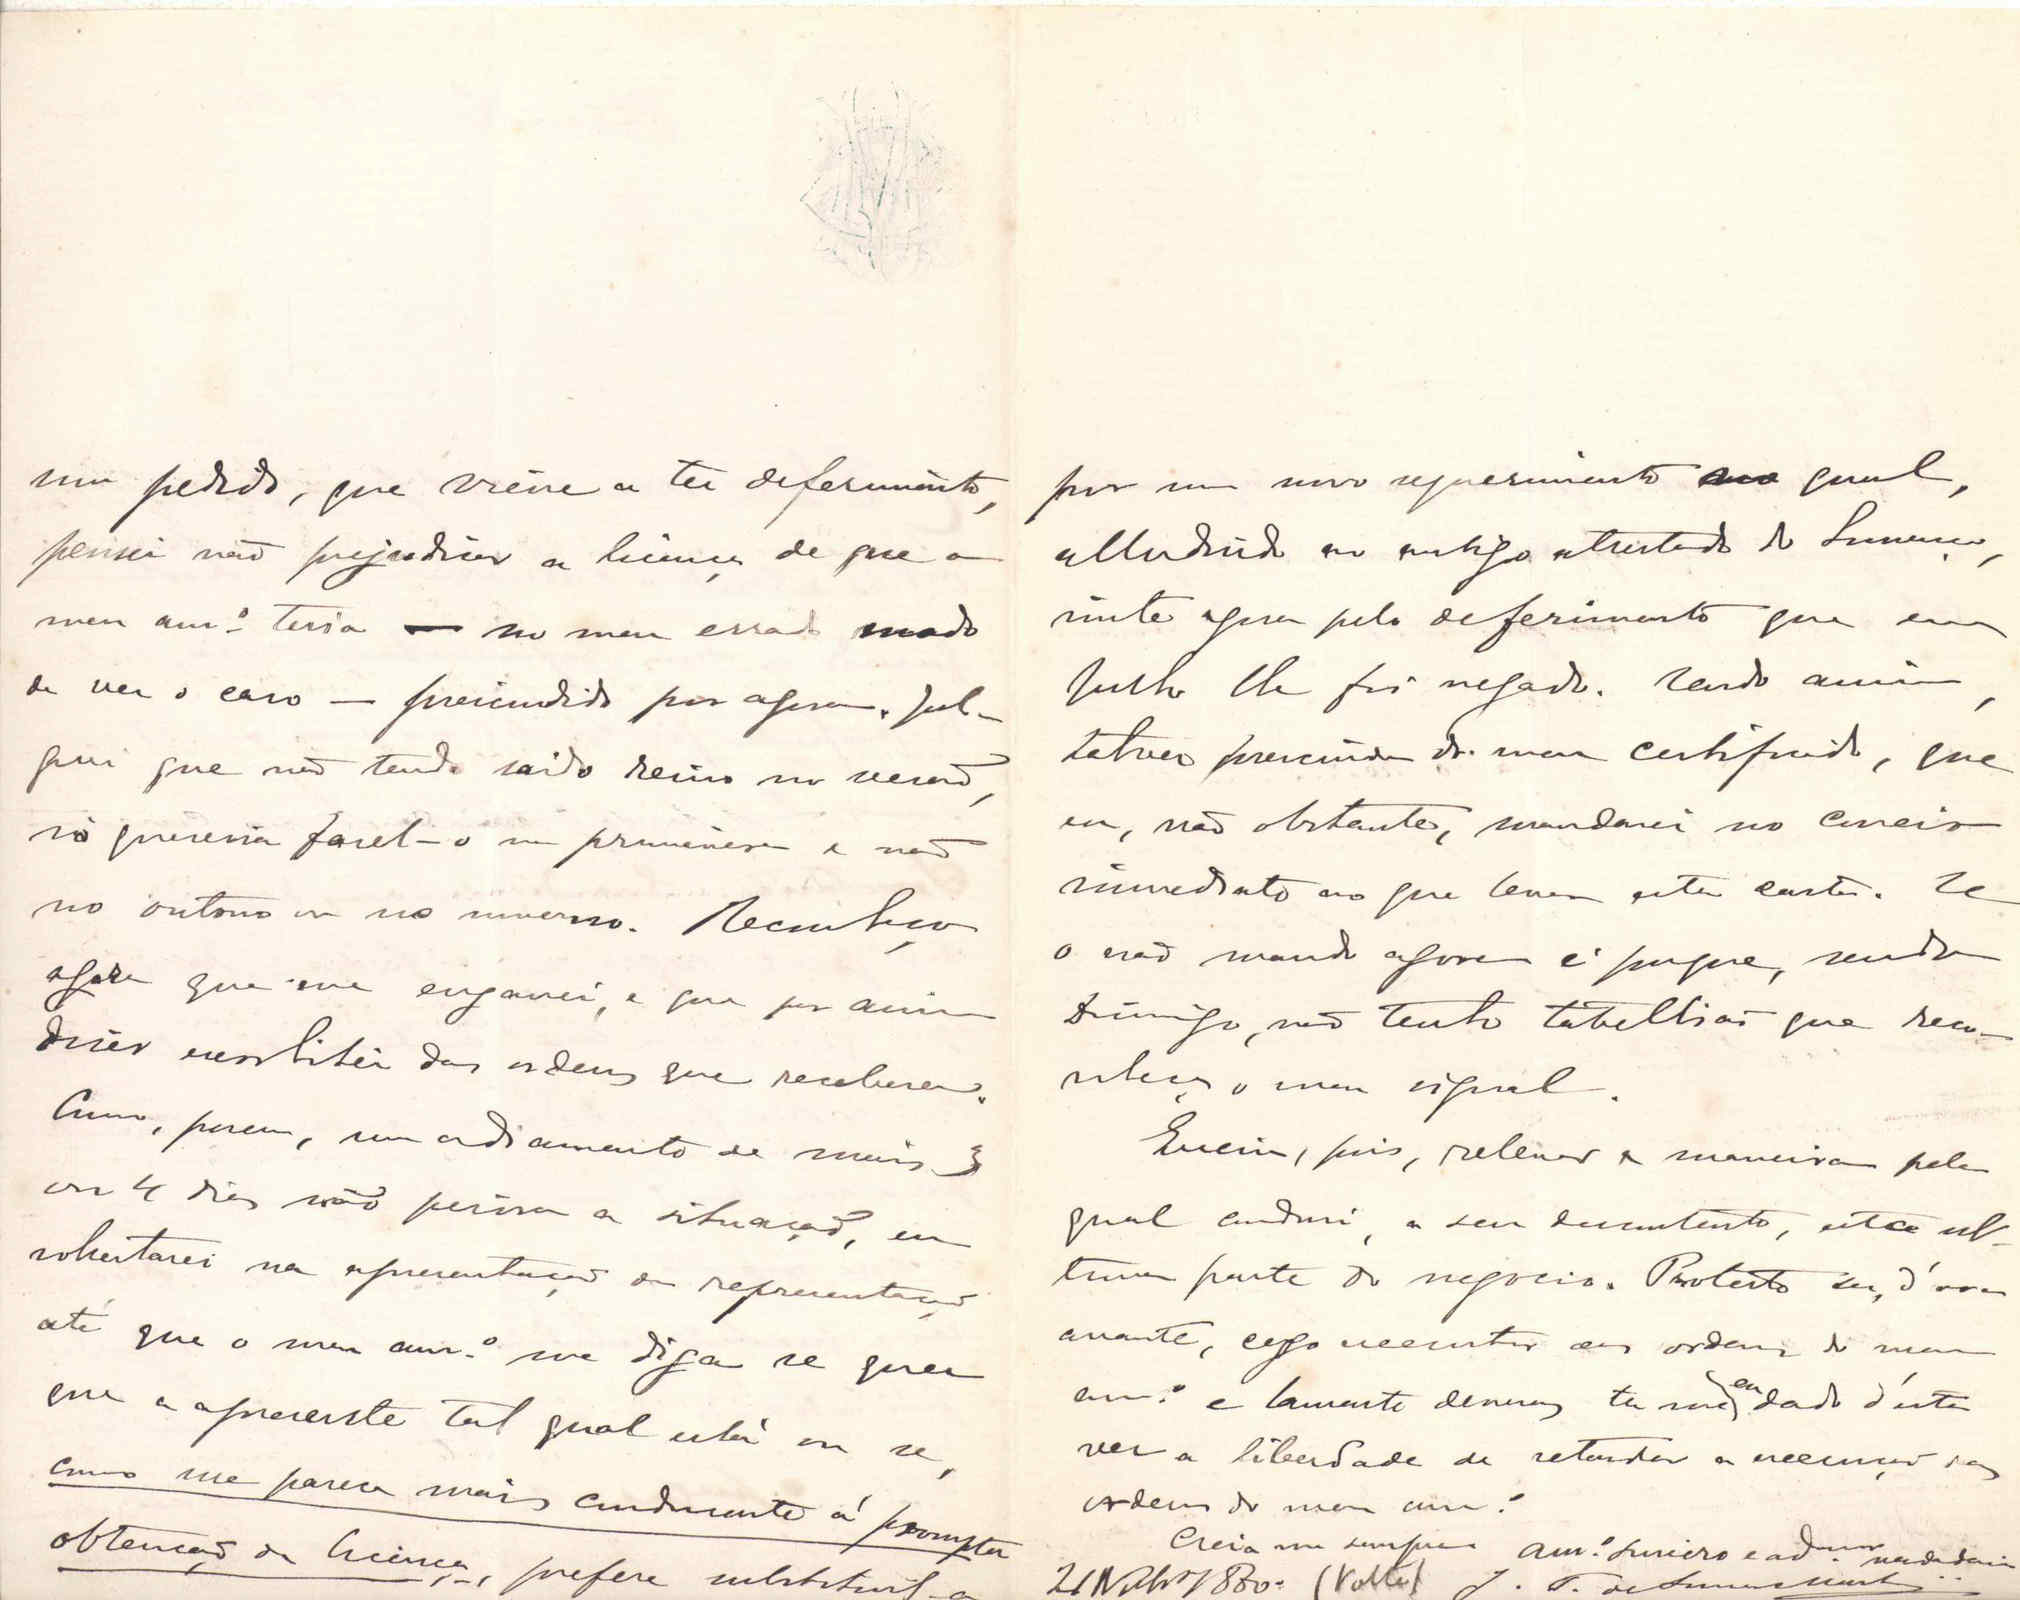 um pedido, que viesse a ter deferimento,
pensei não prejudicar a licença de que o
meu am.º teria — no meu errado modo
de ver o caso — prescindido por agora. Jul-
guei que não tendo saido reino no verão,
só quereria fazel-o na primavera e não
no outono ou no inverno. Reconheço
agora que me enganei, e que por assim
dizer exorbitei das ordens que recebera.
Como, porem, um adiamento de mais 3
ou 4 dias não peiora a situação, eu
sobrestarei na apresentação da representação
até que o meu am.º me diga se quer
que a apresente tal qual está ou se,
como me parece mais conducente á prompta
obtenção da licença, prefere substituil-a
por um novo requerimento no qual,
alludindo ao antigo attestado do Lourenço,
inste agora pelo deferimento que em
Julho lhe foi negado. Sendo assim,
talvez prescinda do meu certificado, que
eu, não obstante, mandarei no correio
immediato ao que levar esta carta. Se
o não mando agora é porque, sendo
Domingo, não tenho tabellião que reco-
nheça o meu signal.
Queira, pois, relevar a maneira pela
qual conduzi, a seu descontento, esta ul-
tima parte do negocio. Protesto ser, d'ora
avante, cego executor das ordens do meu
am.º e lamento deveras ter me eu dado d'esta
vez a liberdade de retardar a execução das
ordens do meu am.º
Creia me sempre am.º sincero e ad.mor verdadeiro
21 Novbr.º 1880. (Volte) J. T. de